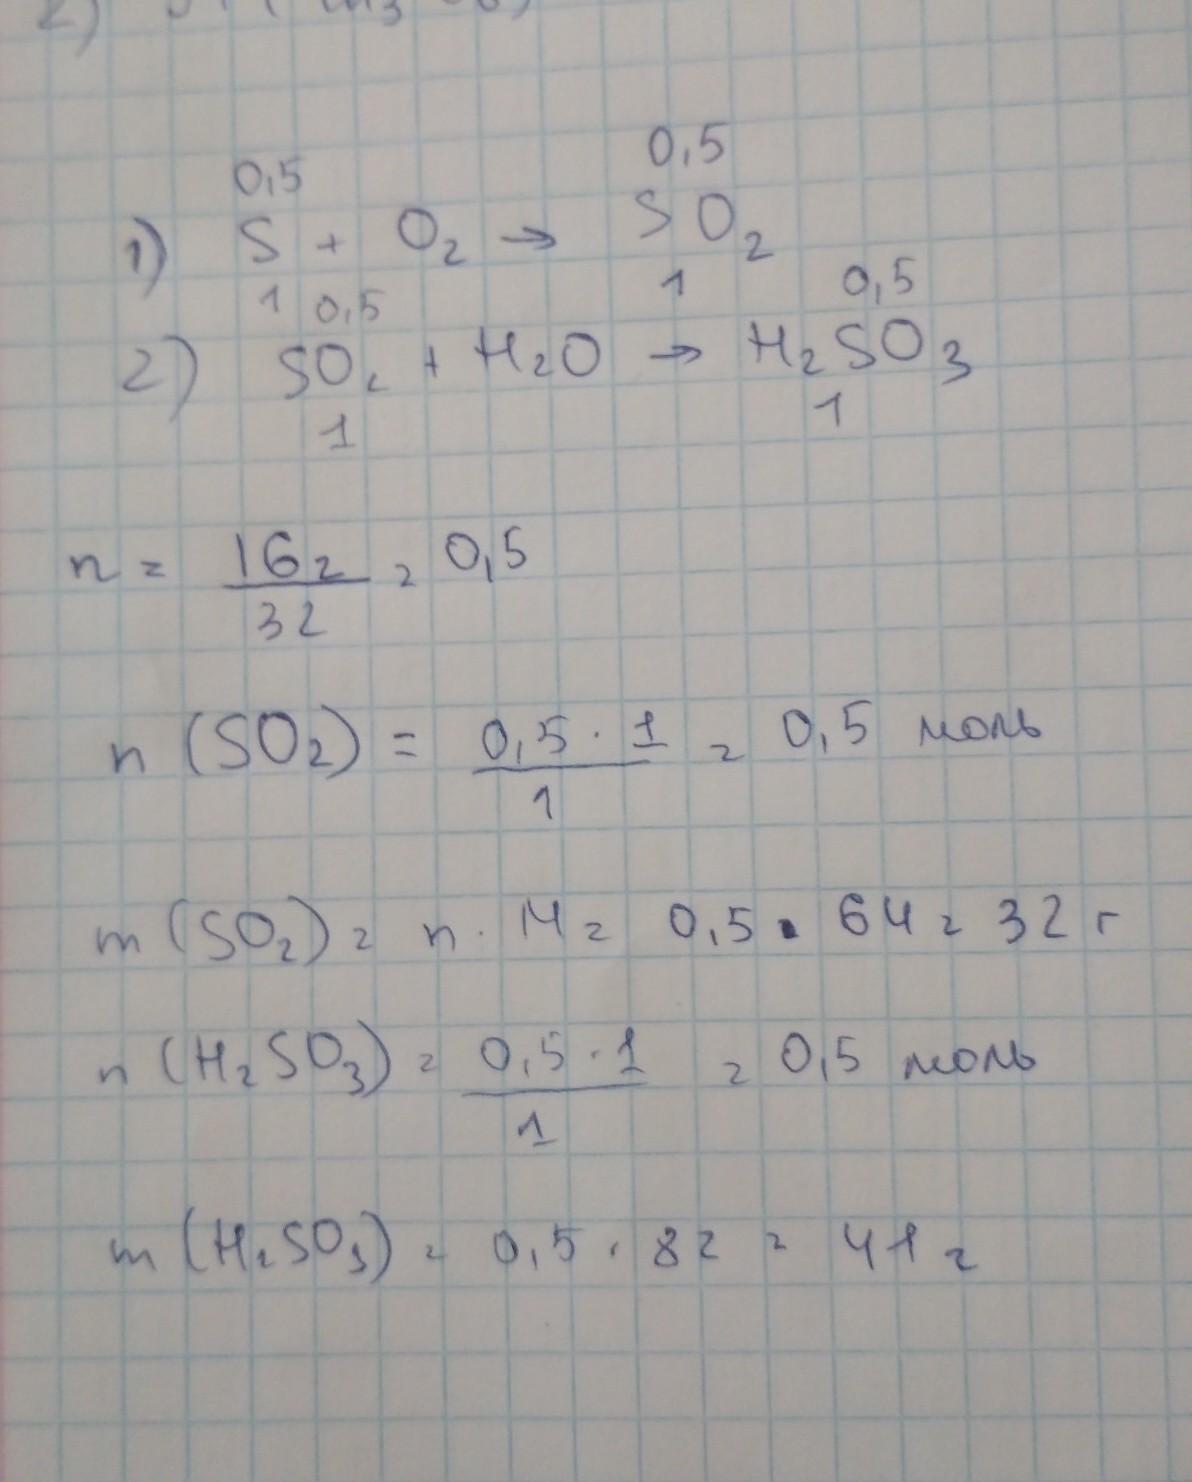 2)
0,5 0,5
1) S + O₂ → SO₂
1 0,5 1 0,5
2) SO₂ + H₂O → H₂SO₃
1 1
n = 16г / 32 = 0,5
n (SO₂) = 0,5 · 1 / 1 = 0,5 моль
m (SO₂) = n · M = 0,5 · 64 = 32 г
n (H₂SO₃) = 0,5 · 1 / 1 = 0,5 моль
m (H₂SO₃) = 0,5 · 82 = 41 г